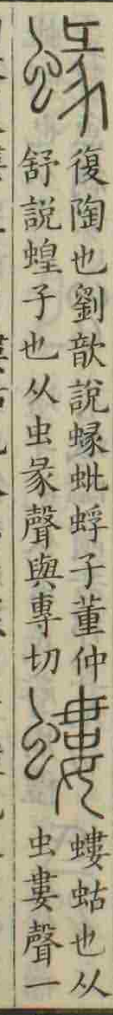 蝝
復陶也劉歆說蝝蚍蜉子董仲
舒說蝗子也从虫彖聲與專切
螻
螻蛄也从
虫婁聲一